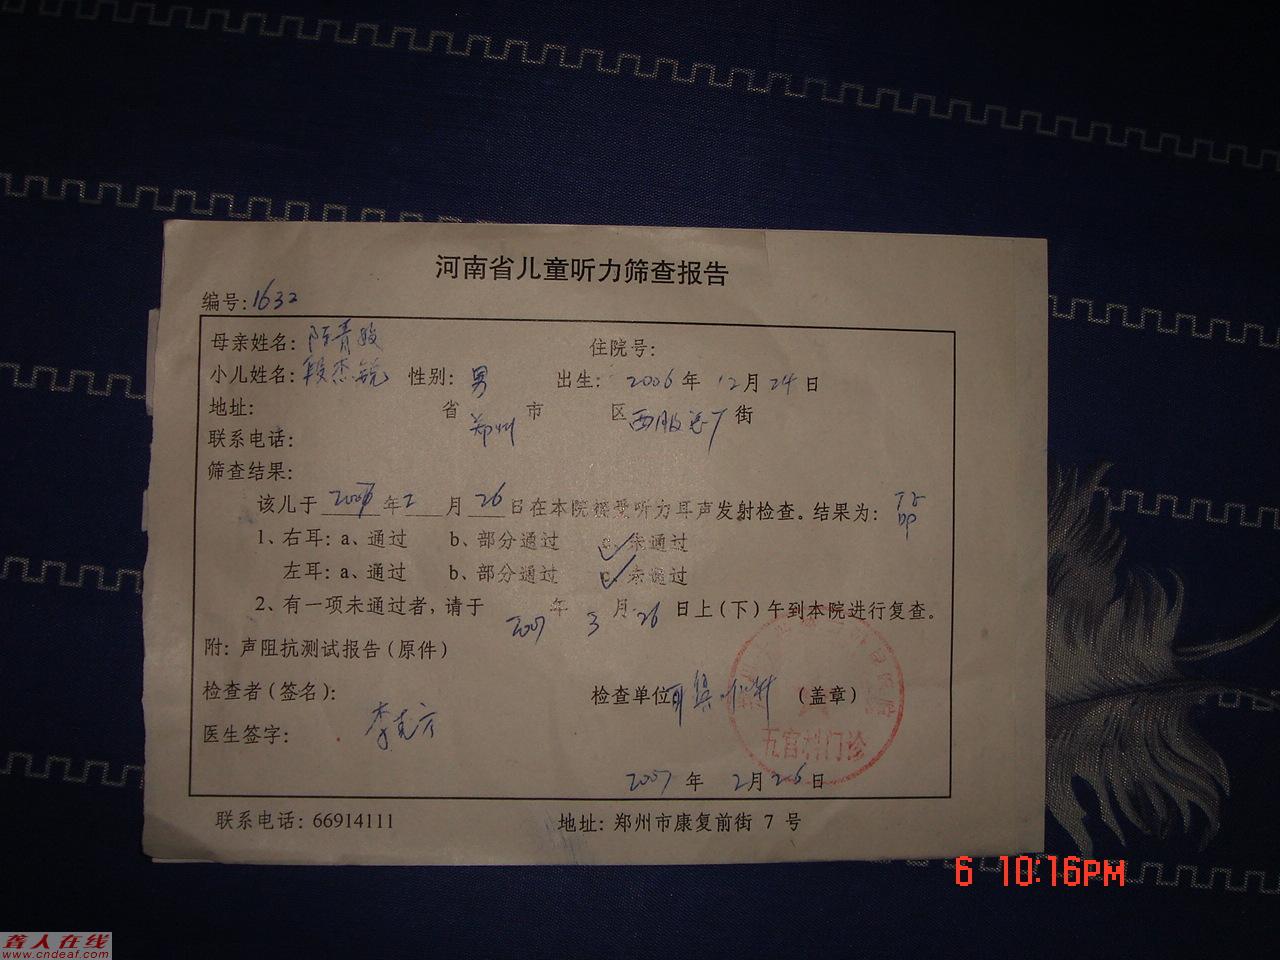 河南省儿童听力筛查报告
编号:1632
母亲姓名: 陈青姣 住院号:
小儿姓名: 段杰锐 性别: 男 出生: 2006年 12月 24日
地址: 省 郑州 市 区 街
联系电话:
筛查结果:
该儿于 2007年2月26日在本院接受听力耳声发射检查。结果为:
1、右耳: a、通过 b、部分通过 c、未通过
左耳: a、通过 b、部分通过 c、未通过
2、有一项未通过者, 请于 2007年 3月 26日上(下)午到本院进行复查。
附: 声阻抗测试报告(原件)
检查者(签名):
检查单位 (盖章)
医生签字: 李克方
五官科门诊
2007年 2月26日
联系电话: 66914111 地址: 郑州市康复前街 7 号
6 10:16PM
聋人在线
www.cndeaf.com